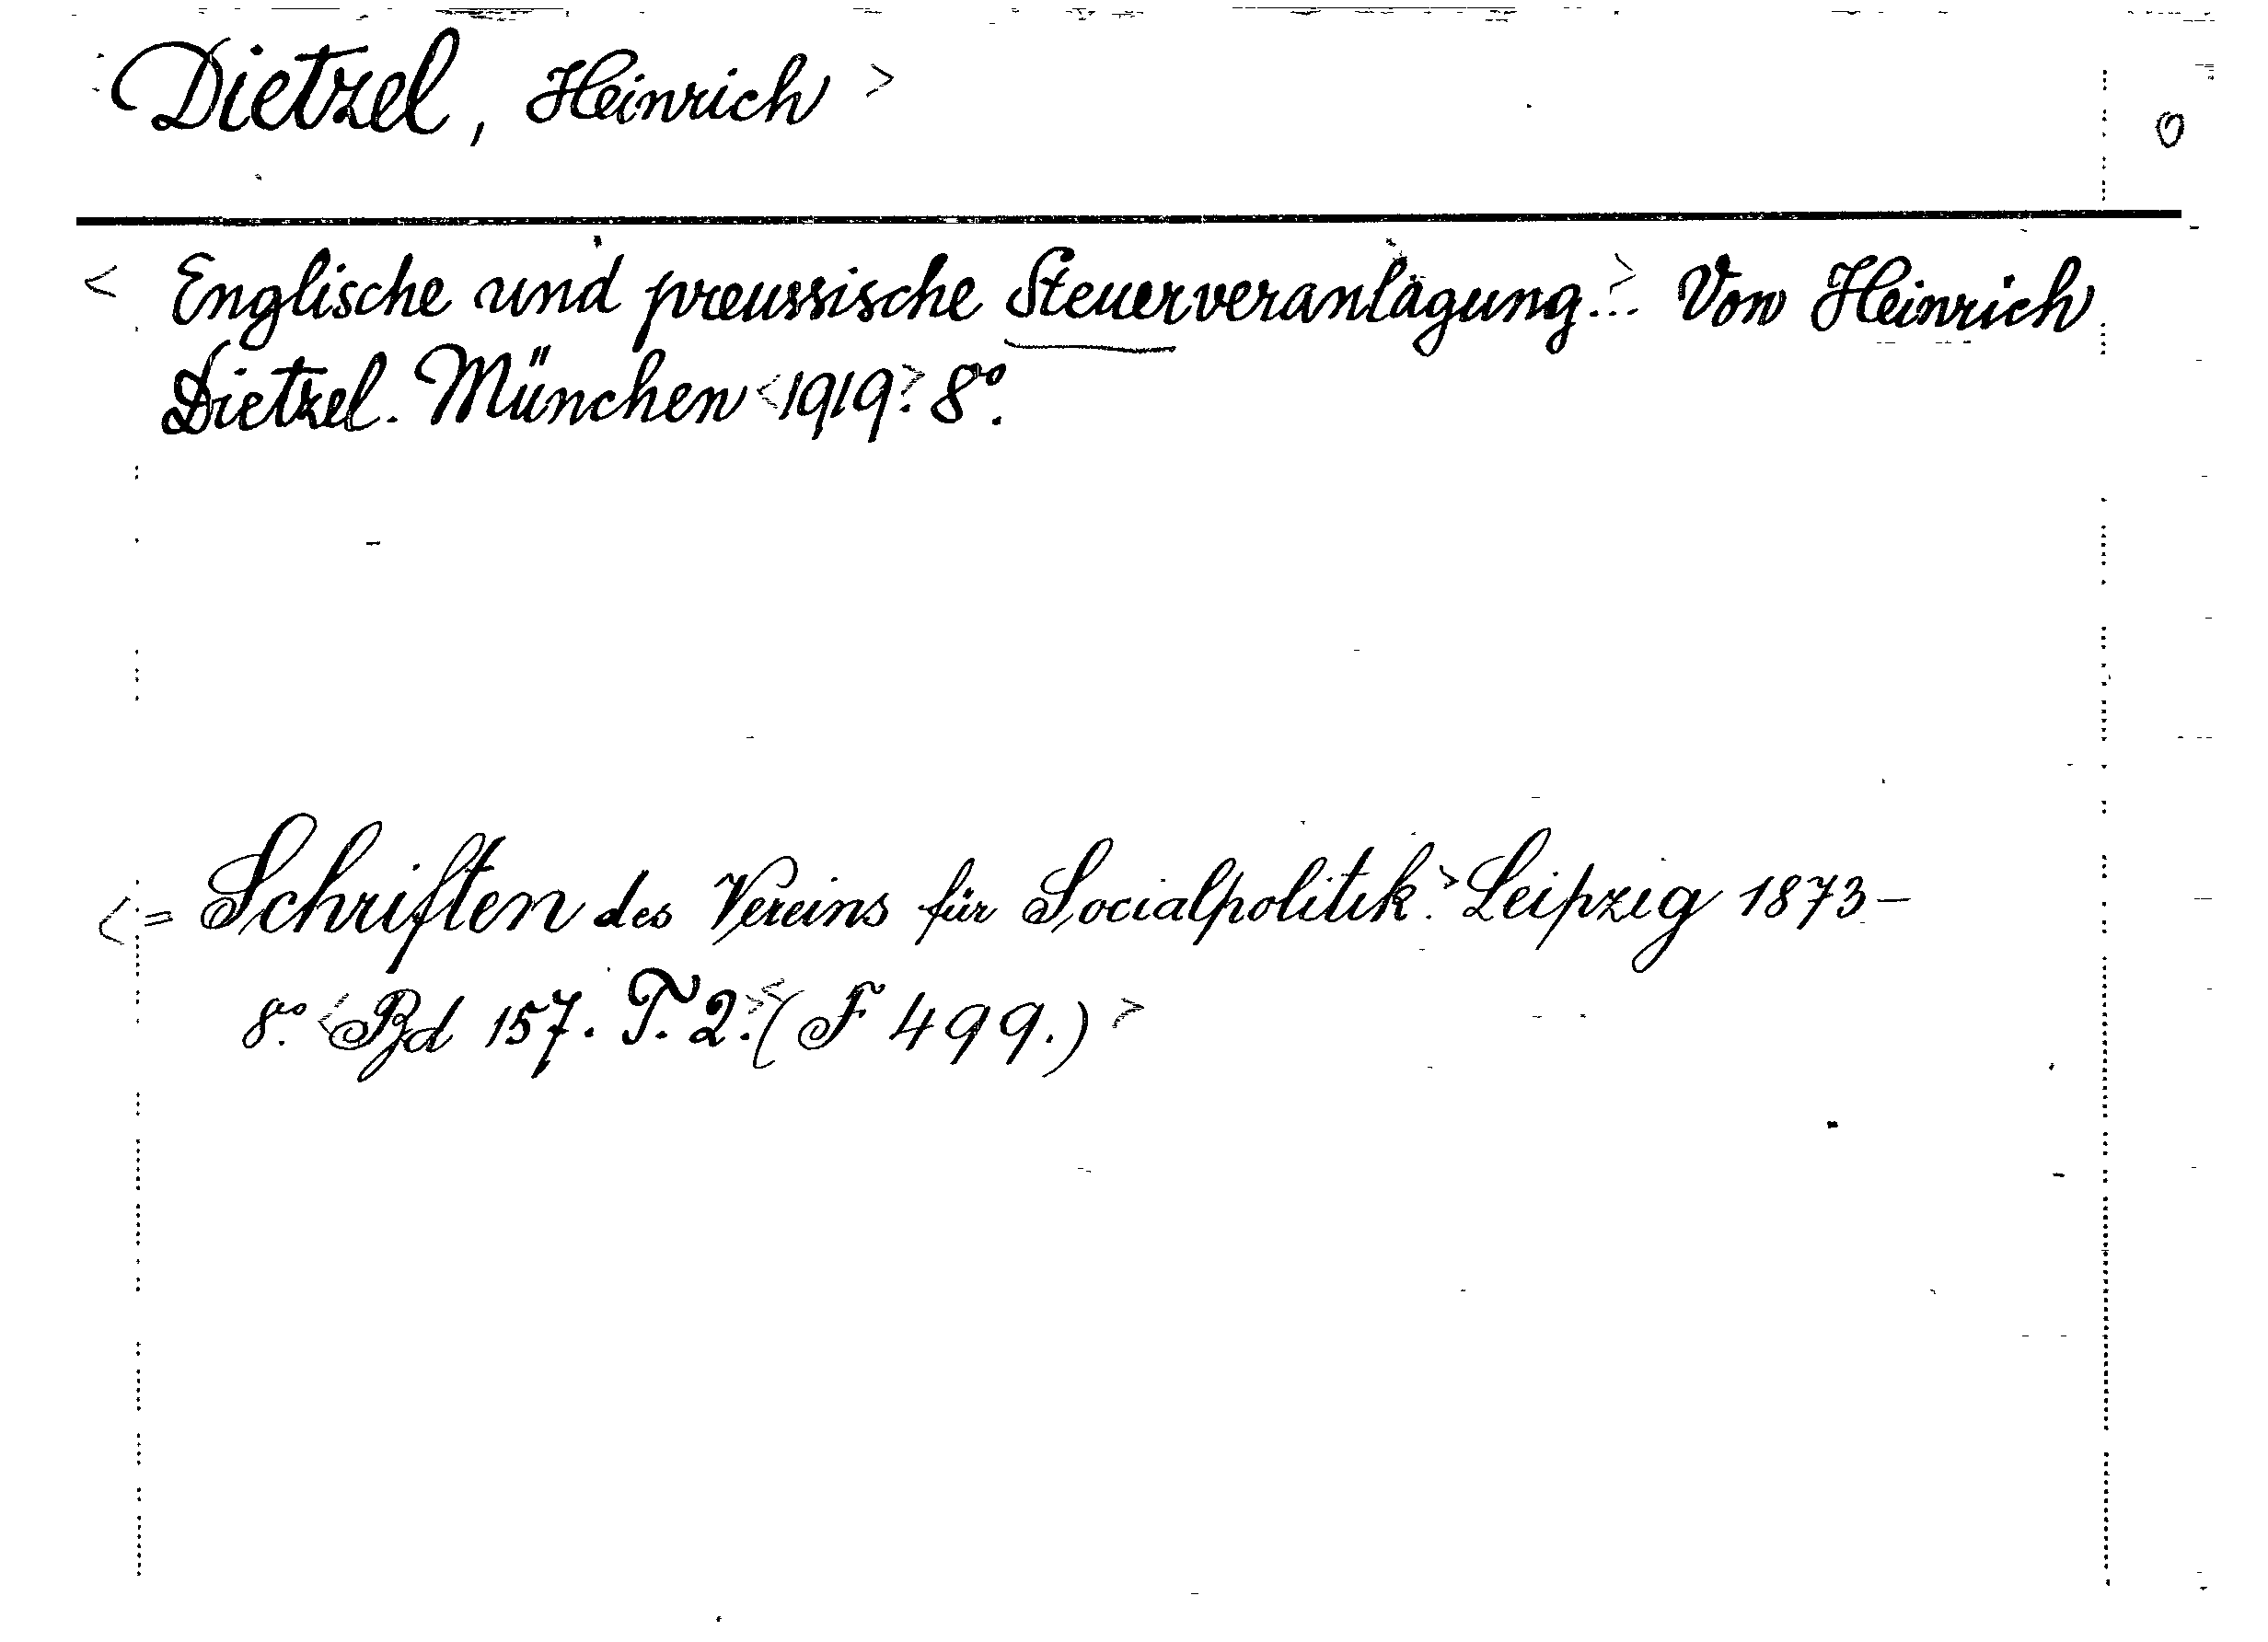 Dietzel, Heinrich >
0
< Englische und preussische Steuerveranlagung...> Von Heinrich
Dietzel. München <1919>. 8°.
<= Schriften des Vereins für Socialpolitik.> Leipzig 1873–
8°. <Bd 157. T. 2.> <(F 499.)>